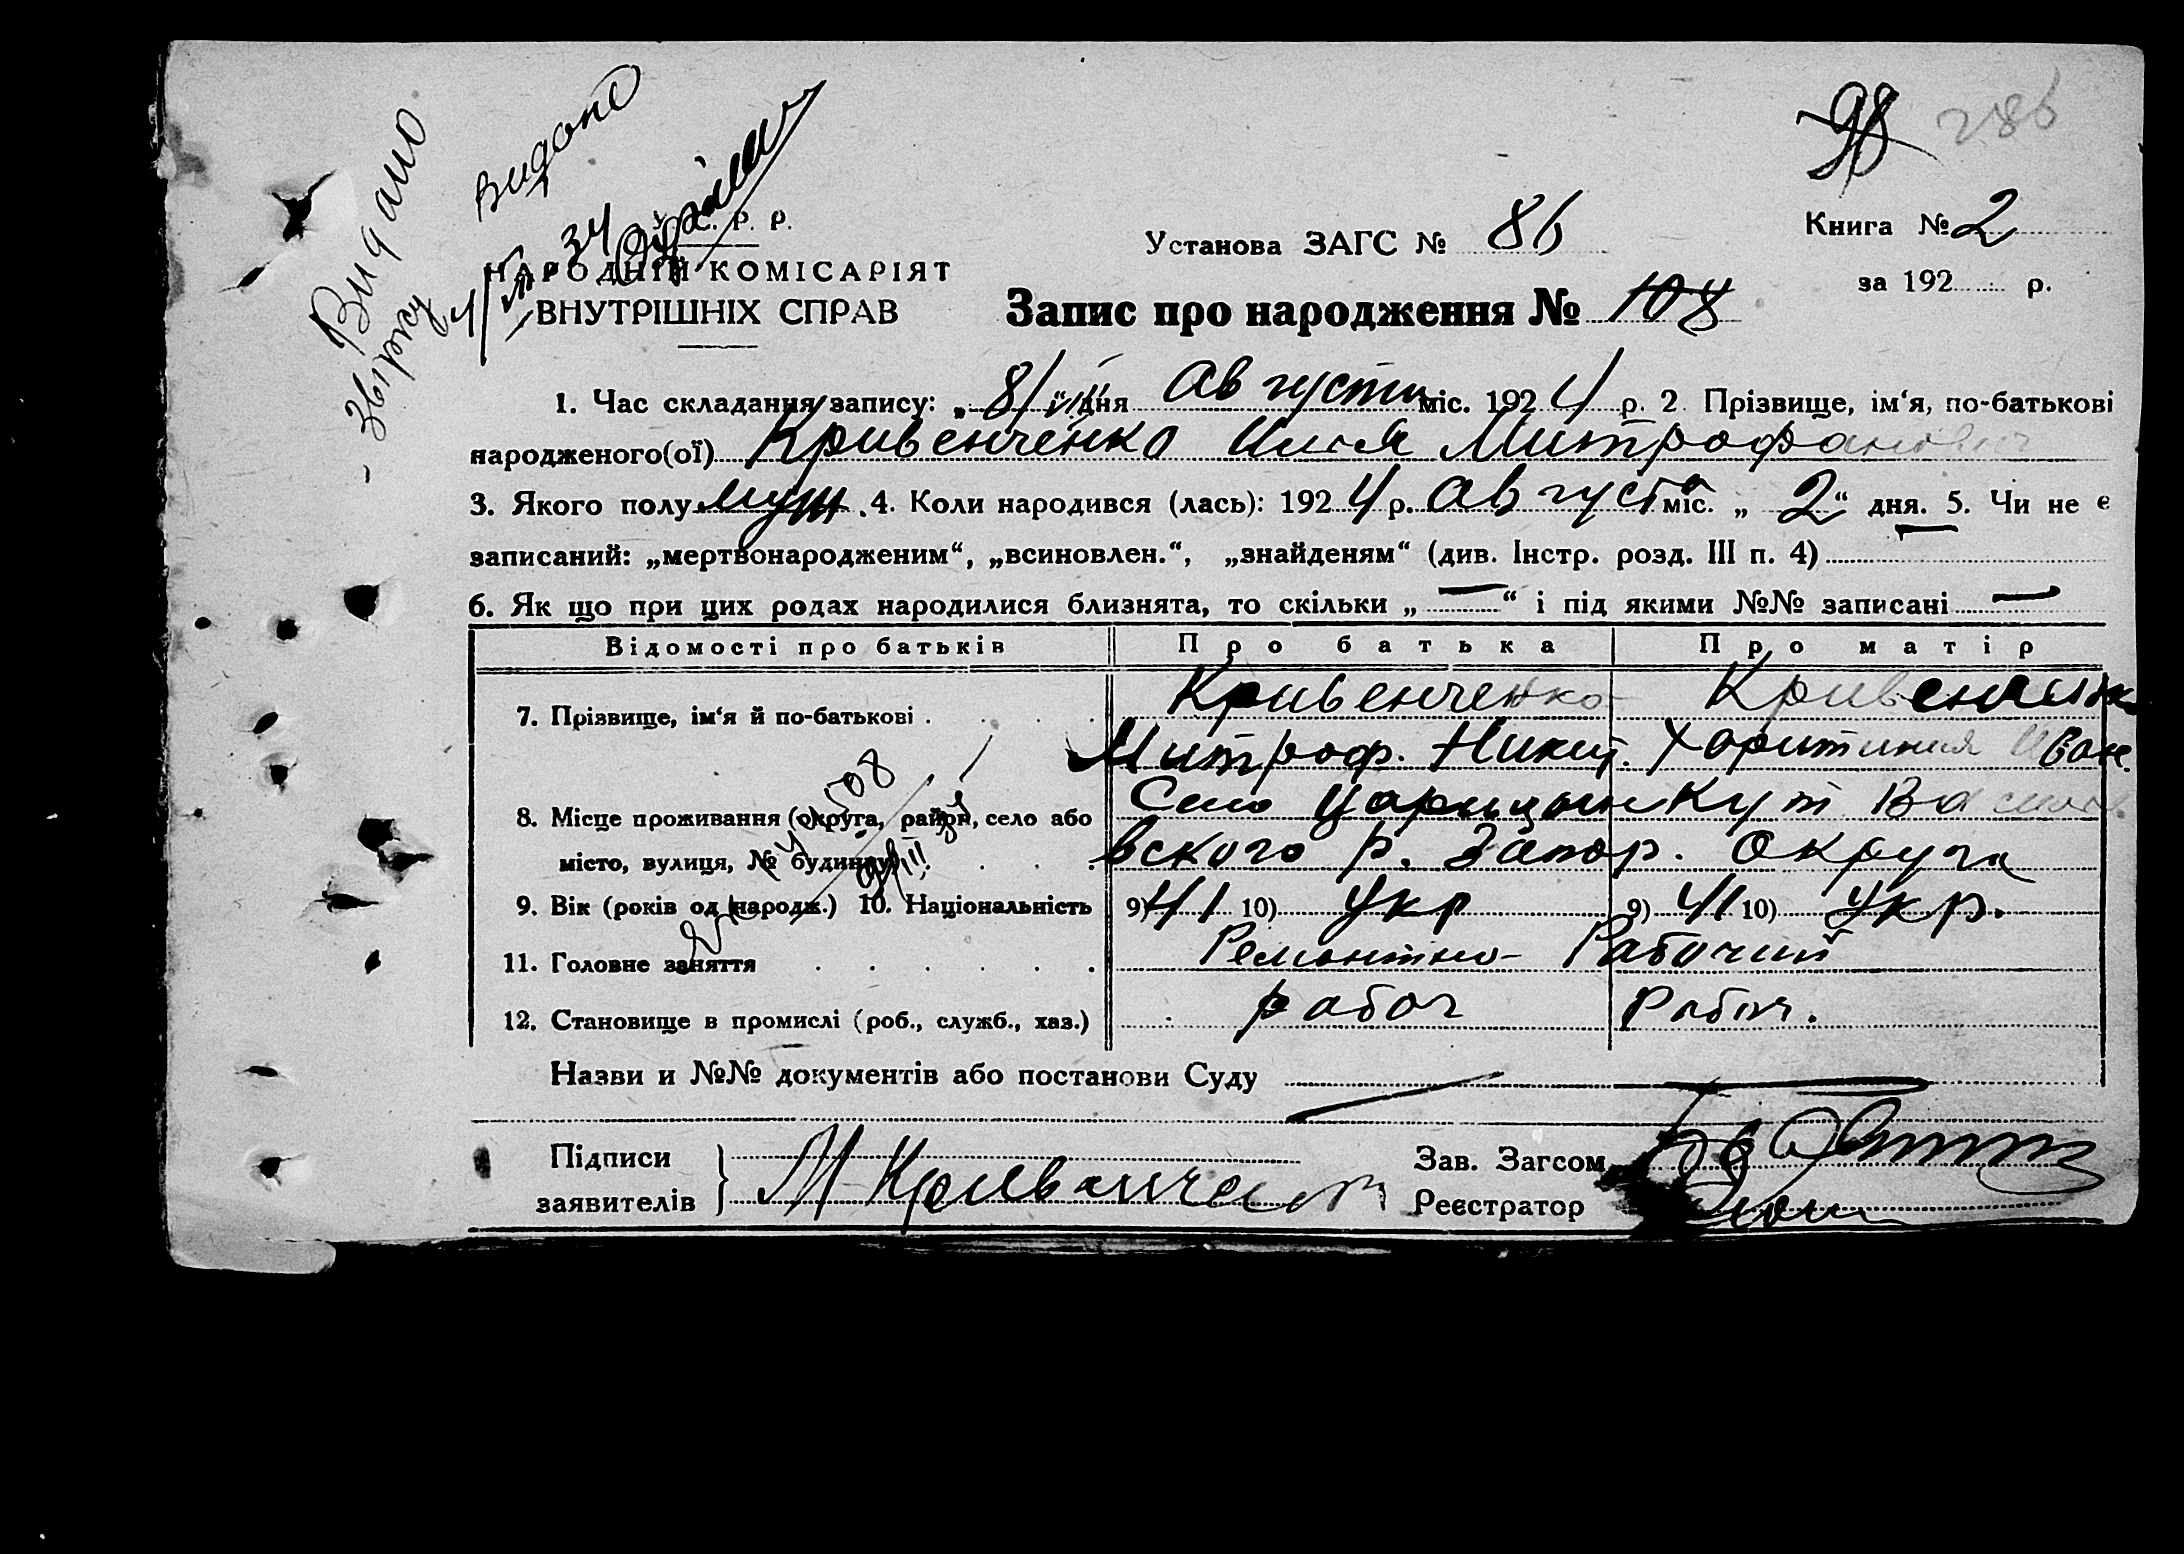 98 286
Видано
Видано
звірку
34
С. Р. Р.
НАРОДНІЙ КОМІСАРІЯТ
ВНУТРІШНІХ СПРАВ
Установа ЗАГС № 86
Книга № 2
за 192 р.
Запис про народження № 108
1. Час складання запису: „ 8/VIII “ дня Августа міс. 1924 р. 2. Прізвище, ім‘я, по-батькові
народженого(ої) Кривенченко Илья Митрофанович
3. Якого полу муж. 4. Коли народився (лась): 1924 р. Августа міс. „ 2 “ дня. 5. Чи не є
записаний: „мертвонародженим“, „всиновлен.“, „знайденям“ (див. Інстр. розд. III п. 4) —
6. Як що при цих родах народилися близнята, то скільки „ — “ і під якими №№ записані —
Відомості про батьків Про батька Про матір
7. Прізвище, ім‘я й по-батькові . . . . Кривенченко Кривенченк
Митроф. Никит. Харитиния Иван.
8. Місце проживання (округа, район, село або Село Царицын Кут Васильє
місто, вулиця, № будинку) . . . вского р. Запор. Округа
9. Вік (років од народж.) 10. Національність 9) 41 10) Укр 9) 41 10) Укр.
11. Головне заняття . . . . . . Ремонтно- Рабочий
12. Становище в промислі (роб., служб., хаз.) рабоч Рабоч.
Назви и №№ документів або постанови Суду
Підписи
заявителів М Кривенченко
Зав. Загсом
Реєстратор